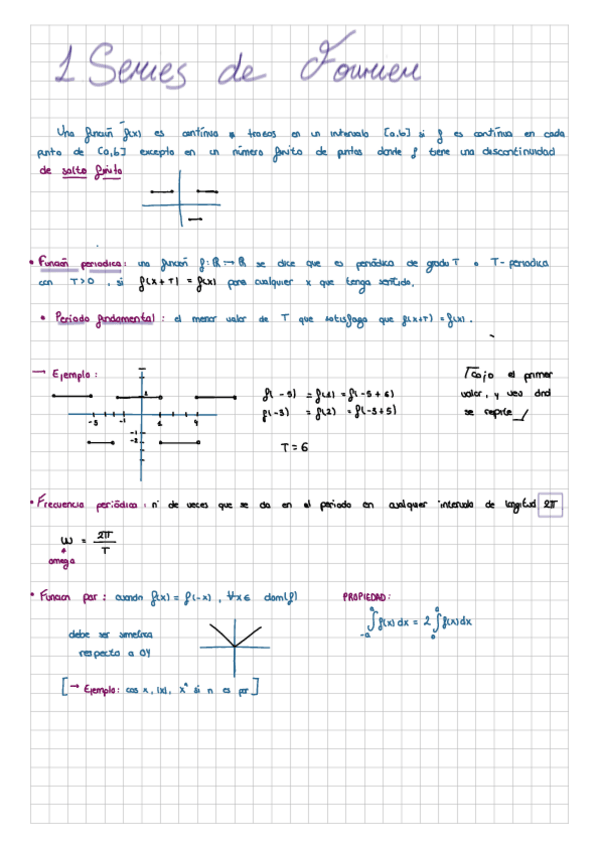 1 Series de Fourier
Una función f(x) es continua a trozos en un intervalo [a,b] si f es continua en cada
punto de [a,b] excepto en un número finito de puntos donde f tiene una discontinuidad
de salto finito
• Función periodica: una función f: R → R se dice que es periódica de grado T o T-periodica
con T>0, si f(x+T) = f(x) para cualquier x que tenga sentido.
• Periodo fundamental: el menor valor de T que satisfaga que f(x+T) = f(x).
→ Ejemplo:
f(-5) = f(1) = f(-5+6)
f(-3) = f(2) = f(-3+5)
T = 6
cojo el primer
valor, y veo dnd
se repite
-5 -1 1 2
-1
-2
• Frecuencia periódica: nº de veces que se da en el periodo en cualquier intervalo de longitud 2π
ω = 2π/T
omega
• Funcion par: cuando f(x) = f(-x), ∀x ∈ dom(f)
debe ser simetrica
respecto a OY
PROPIEDAD:
∫_{-a}^{a} f(x) dx = 2 ∫_{0}^{a} f(x) dx
[→ Ejemplo: cos x, |x|, xⁿ si n es par]